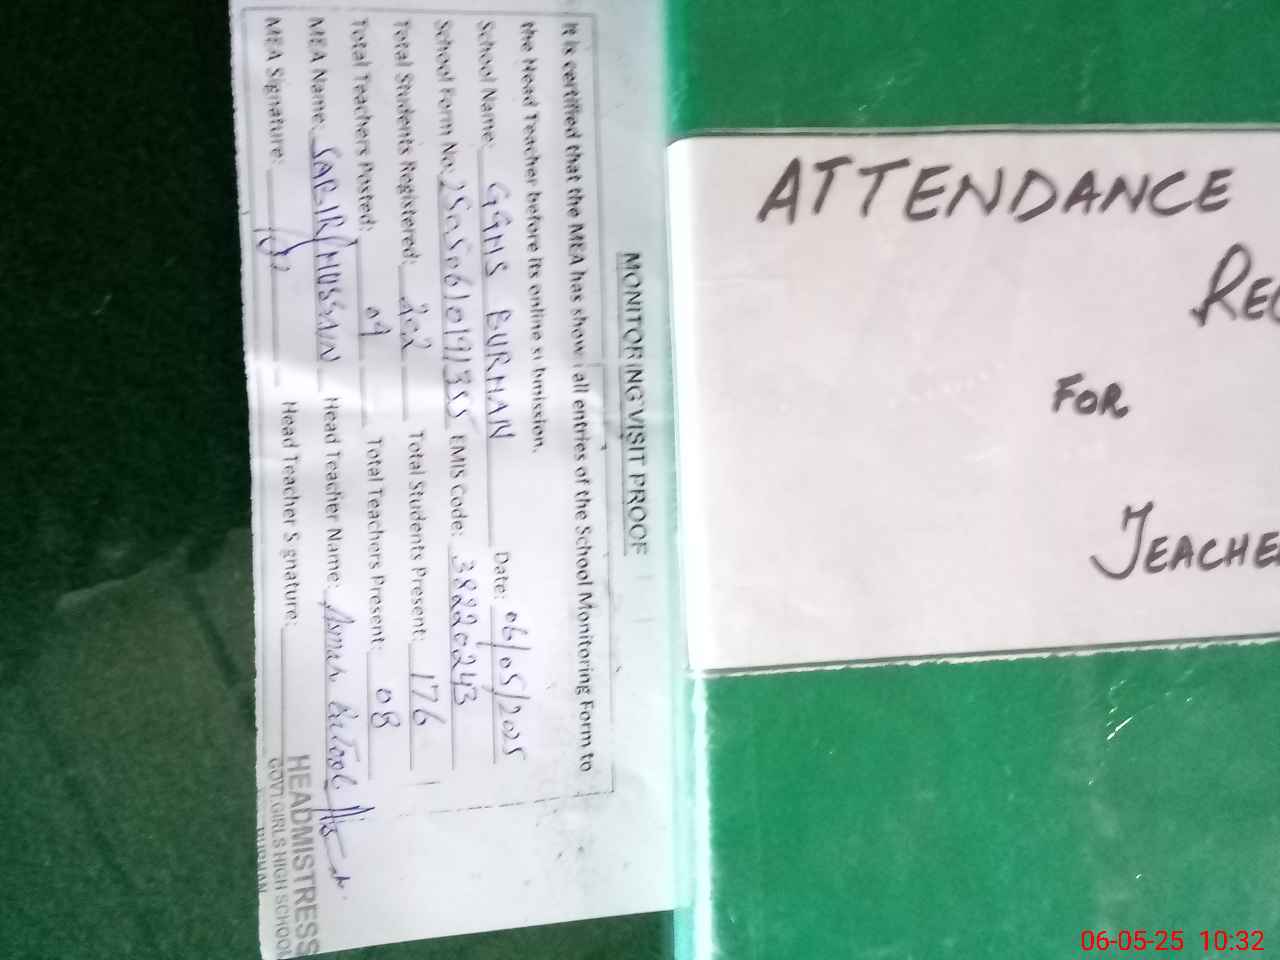 MONITORING VISIT PROOF
It is certified that the MEA has shown all entries of the School Monitoring Form to
the Head Teacher before its online submission.
School Name: GGHS BURHAN Date: 06/05/2025
School Form No: EMIS Code: 38220243
Total Students Registered: 202 Total Students Present: 176
Total Teachers Posted: 09 Total Teachers Present: 08
MEA Name: SABIR HUSSAIN Head Teacher Name: Asmah Batool
MEA Signature: Head Teacher Signature:
HEADMISTRESS
GOVT GIRLS HIGH SCHOOL
BURHAN
ATTENDANCE
REG
FOR
TEACHE
06-05-25 10:32